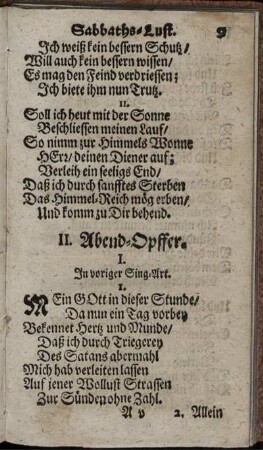 Sabbaths-Lust. 9
Ich weiß kein bessern Schutz/
Will auch kein bessern wissen/
Es mag den Feind verdriessen;
Ich biete ihm nun Trutz.
11.
Soll ich heut mit der Sonne
Beschliessen meinen Lauf/
So nimm zur Himmels Wonne
HErr/ deinen Diener auf;
Verleih ein seeligs End/
Daß ich durch sanfftes Sterben
Das Himmel-Reich mög erben/
Und komm zu Dir behend.
II. Abend-Opffer.
I.
In voriger Sing-Art.
1.
MEin GOtt in dieser Stunde/
Da nun ein Tag vorbey
Bekennet Hertz und Munde/
Daß ich durch Triegerey
Des Satans abermahl
Mich hab verleiten lassen
Auf jener Wollust Strassen
Zur Sünde ohne Zahl.
A v 2. Allein